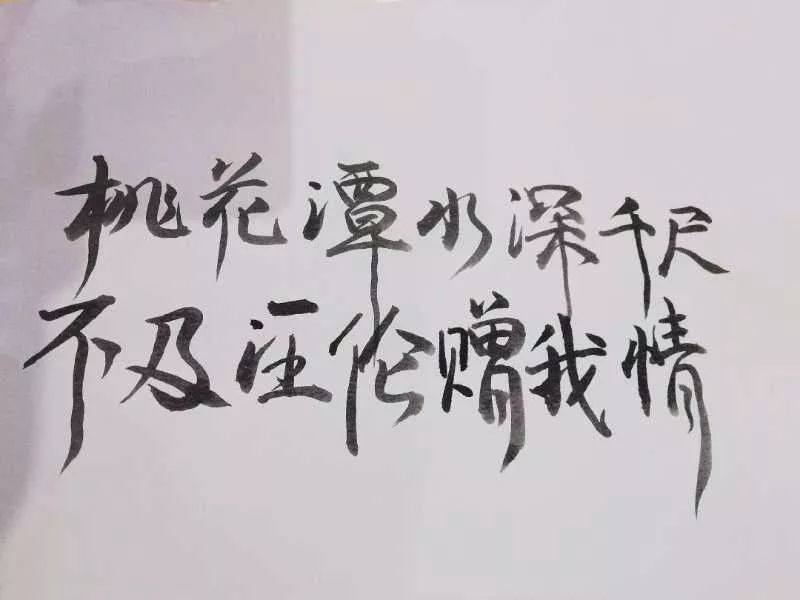 桃花潭水深千尺
不及汪伦赠我情